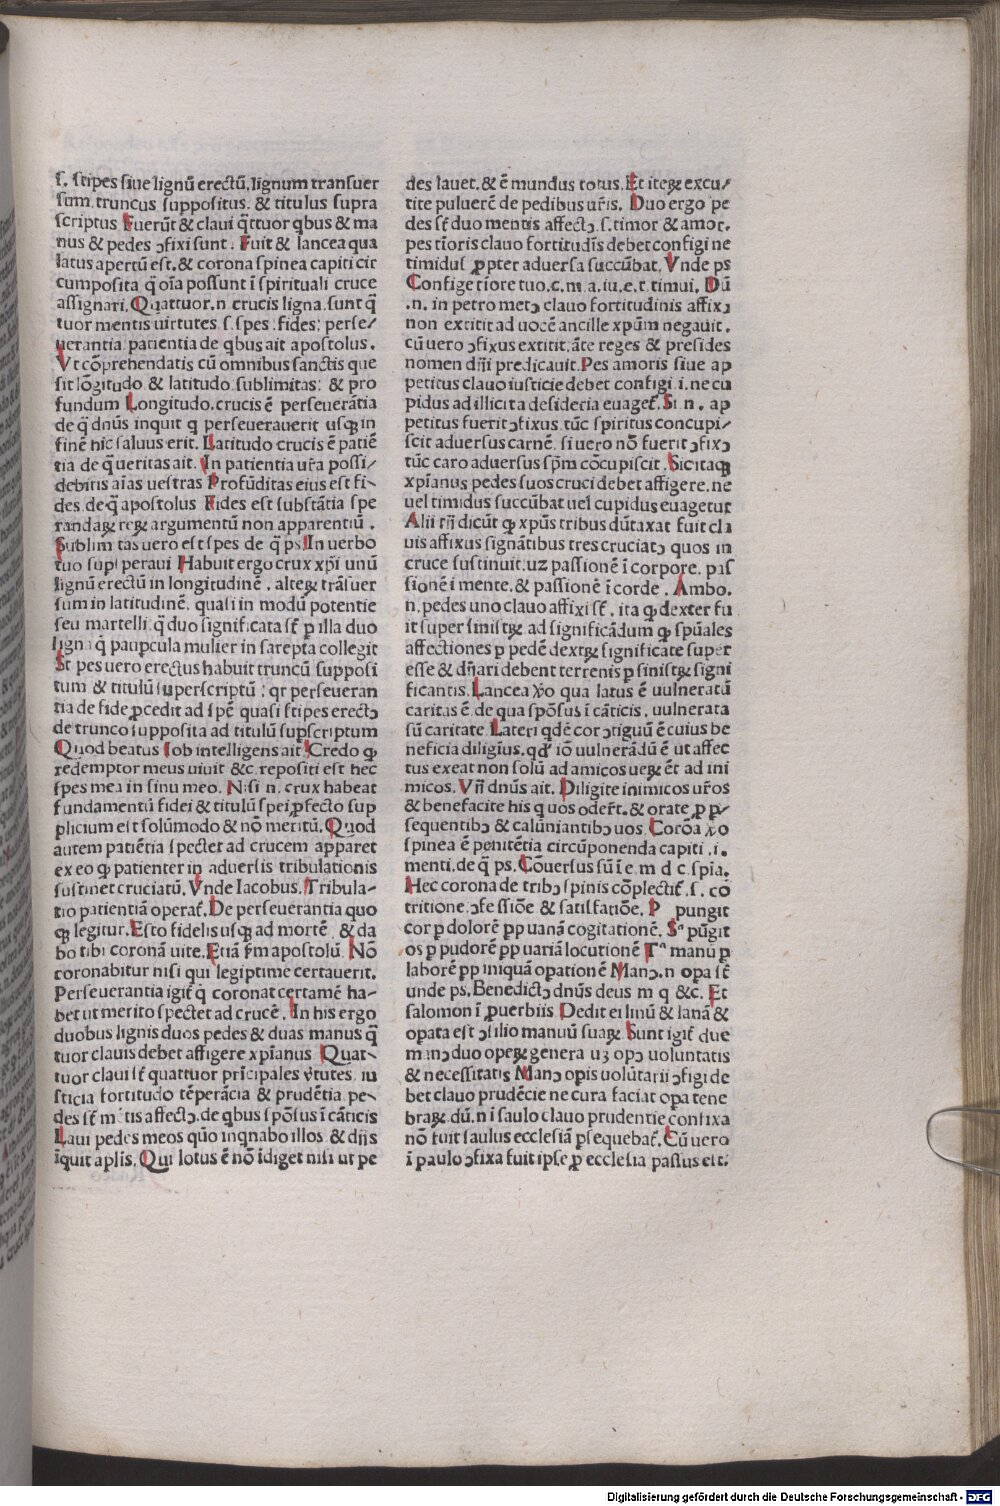 s. stipes siue lignū erectū, lignum transuer
sum, truncus suppositus. & titulus supra
scriptus Fuerūt & claui q̄ttuor qbus & ma
nus & pedes ɔfixi sunt. Fuit & lancea qua
latus apertū est. & corona spinea capiti cir
cumposita q̄ oīa possunt ī spirituali cruce
assignari. Quattuor .n crucis ligna. sunt q̄
tuor mentis uirtutes s. spes. fides; perse/
uerantia, patientia de qbus ait apostolus.
Vt cōprehendatis cū omnibus sanctis que
sit lōgitudo & latitudo sublimitas: & pro
fundum Longitudo. crucis ē perseuerātia
de q̄ dnūs inquit q perseuerauerit usqꝫ in
finē hic saluus erit. Latitudo crucis ē patiē
tia de q̄ ueritas ait. In patientia ur̄a possi/
debitis aīas uestras Profūditas eius est fi-
des. de q̄ apostolus Fides est substātia spe
randaꝝ reꝝ argumentū non apparentiū.
Sublim tas uero est spes de q̄ ps. In uerbo
tuo sup speraui Habuit ergo crux xp̄i unū
lignū erectū in longitudinē, alteꝝ trāsuer
sum in latitudinē. quasi in modū potentie
seu martelli. q̄ duo significata sт̄ p illa duo
ligna q̄ paupcula mulier in sarepta collegit
St pes uero erectus habuit truncū supposi
tum & titulū superscriptū; qr perseueran
tia de fide ꝓcedit ad spē quasi stipes erectɔ
de trunco supposita ad titulū supscriptum
Quod beatus Iob intelligens ait. Credo ꝙ
redemptor meus uiuit &c. reposita est hec
spes mea in sinu meo. Nisi n. crux habeat
fundamentū fidei & titulū spei, ꝓfecto sup
plicium est solūmodo & nō meritū. Quod
autem patiētia spectet ad crucem apparet
ex eo ꝙ patienter in aduersis tribulationis
sustinet cruciatū. Vnde Iacobus. Tribula-
tio patientiā operat̄. De perseuerantia quo
qꝫ legitur. Esto fidelis usqꝫ ad mortē. & da
bo tibi coronā uite. Etiā fm apostolū. Nō
coronabitur nisi qui legiptime certauerit.
Perseuerantia igit̄ q̄ coronat certamē ha-
bet ut merito spectet ad crucē. In his ergo
duobus lignis duos pedes & duas manus q̄
tuor clauis debet affigere xp̄ianus Quat-
tuor claui sт̄ quattuor prīcipales v̄tutes. iu
sticia fortitudo tēperācia & prudētia. pe-
des sт̄ mētis affectɔ. de qbus spōsus ī cāticis
Laui pedes meos quō inqnabo illos. & dn̄s
īquit aplīs. Qui lotus ē nō īdiget nisi ut pe
des lauet. & ē mundus totus. Et iteꝝ excu/
tite puluerē de pedibus ur̄is. Duo ergo pe
des sт̄ duo mentis affectɔ. s. timor & amor.
pes tīoris clauo fortitudīs debet configi ne
timidus ꝓpter aduersa succūbat. Vnde ps
Confige tiore tuo. c. m. a. iu. e. t. timui. Dū
.n. in petro metɔ clauo fortitudinis affixɔ
non extitit ad uocē ancille xpūm negauit.
cū uero ɔfixus extitit. āte reges & presides
nomen dn̄i predicauit. Pes amoris siue ap
petitus clauo iusticie debet configi. i. ne cu
pidus ad illicita desideria euaget̄. Si .n. ap
petitus fuerit ɔfixus. tūc spiritus concupi/
scit aduersus carnē. si uero nō fuerit ɔfixɔ
tūc caro aduersus spm̄ cōcupiscit. Sic itaqꝫ
xp̄ianus pedes suos cruci debet affigere. ne
uel timidus succūbat uel cupidus euagetur
Alii tn̄ dicūt ꝙ xpūs tribus dūtaxat fuit cla
uis affixus signātibus tres cruciatɔ quos in
cruce sustinuit: uz passionē ī corpore. pas
sionē ī mente. & passionē ī corde. Ambo.
n. pedes uno clauo affixi sт̄. ita ꝙ dexter fu
it super sinistꝝ ad significādum ꝙ spūales
affectiones p pedē dextꝝ significate super
esse & dn̄ari debent terrenis p sinistꝝ signi
ficantis. Lancea v̊o qua latus ē uulneratū
caritas ē. de qua spōsus ī cāticis, uulnerata
sū caritate. Lateri qdē cor ɔtiguū ē cuius be
neficia diligīus. qd iō uulnerādū ē ut affec
tus exeat non solū ad amicos ueꝝ ēt ad ini
micos. Vn̄ dnūs ait. Diligite inimicos ur̄os
& benefacite his q uos oder̄t. & orate ꝓ p/
sequentibɔ & calūniantibɔ uos. Corōa v̊o
spinea ē penitētia circūponenda capiti. i.
menti. de q̄ ps. Cōuersus sū ī e. m d c. spīa.
Hec corona de tribɔ spinis cōplectit̄. s. cō
tritione. ɔfessiōe & satisfatiōe. P pungit
cor p dolorē pp uanā cogitationē. Sa pūgit
os p pudorē pp uariā locutionē Ta manū p
laborē pp iniquā opationē Manɔ. n opa sт̄
unde ps. Benedictɔ dnūs deus m q &c. Et
salomon ī ꝓuerbiis Dedit ei linū & lanā &
opata est ɔsilio manuū suaꝝ Sunt igit̄ due
manɔ duo opeꝝ genera uꝫ opɔ uoluntatis
& necessitatis Manɔ opis uolūtarii ɔfigi de
bet clauo prudēcie ne cura faciat opa tene
braꝝ dū. n ī saulo clauo prudentie confixa
nō fuit saulus ecclesiā psequebat̄. Cū uero
ī paulo ɔfixa fuit ipse ꝓ ecclesia passus est.
Digitalisierung gefördert durch die Deutsche Forschungsgemeinschaft - DFG